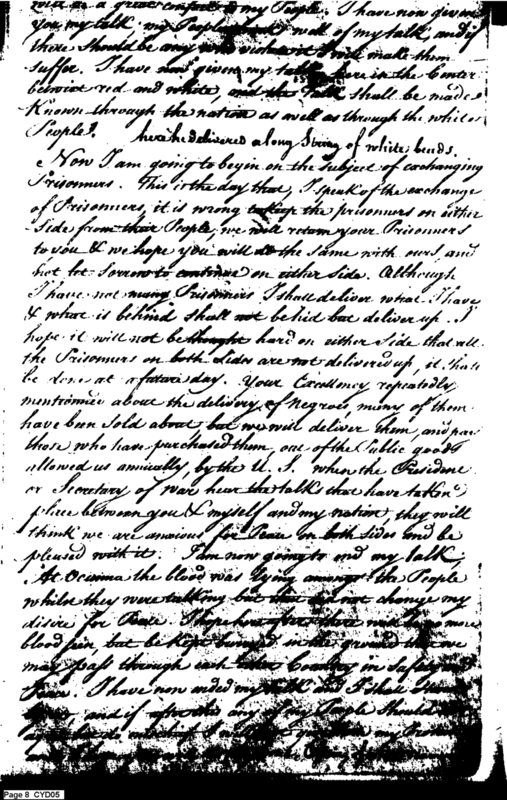 will be a great comfort to my People. I have now given
you my talk, my People think well of my talk and if
there should be any who violate it I will make them
suffer. I have now given my talk here in the Center
between red and white, and the talk shall be made
Known through the nation as well as through the white
People.
here he delivered a long String of white beads.
Now I am going to begin on the subject of exchanging
Prisonners. This is the day that, I speak of the exchange
of Prisonners, it is wrong to keep the prisonners on either
Side from their People, we will return your Prisonners
to you & we hope you will do the same with ours, and
not let Sorrow to continue on either Side. Although
I have not many Prisonners I shall deliver what I have
& what is behind shall not be hid but deliver up. I
hope it will not be thought hard on either Side that all
the Prisonners on both Sides are not delivered up, it shall
be done at a future day. Your Excellency repeatedly
mentionned about the delivery of Negroes, many of them
have been Sold about but we will deliver them, and pay
those who have purchased them, out of the Public goods
allowed us annually, by the U. S. when the President
or Secretary of War hear the talks that have taken
place between you & myself and my nation they will
think we are anxious for Peace on both sides and be
pleased with it. I am now going to end my talk,
At the blood was lying amongst the People
whilst they were talking but that did not change my
disire for Peace. I hope hereafter there will be no more
blood seen but be kept buried in the ground that we
may pass through each other Country in Safety and
Peace. I have now ended my talk and I shall
and if after this any of my People Should
my
Page 8 CYD05